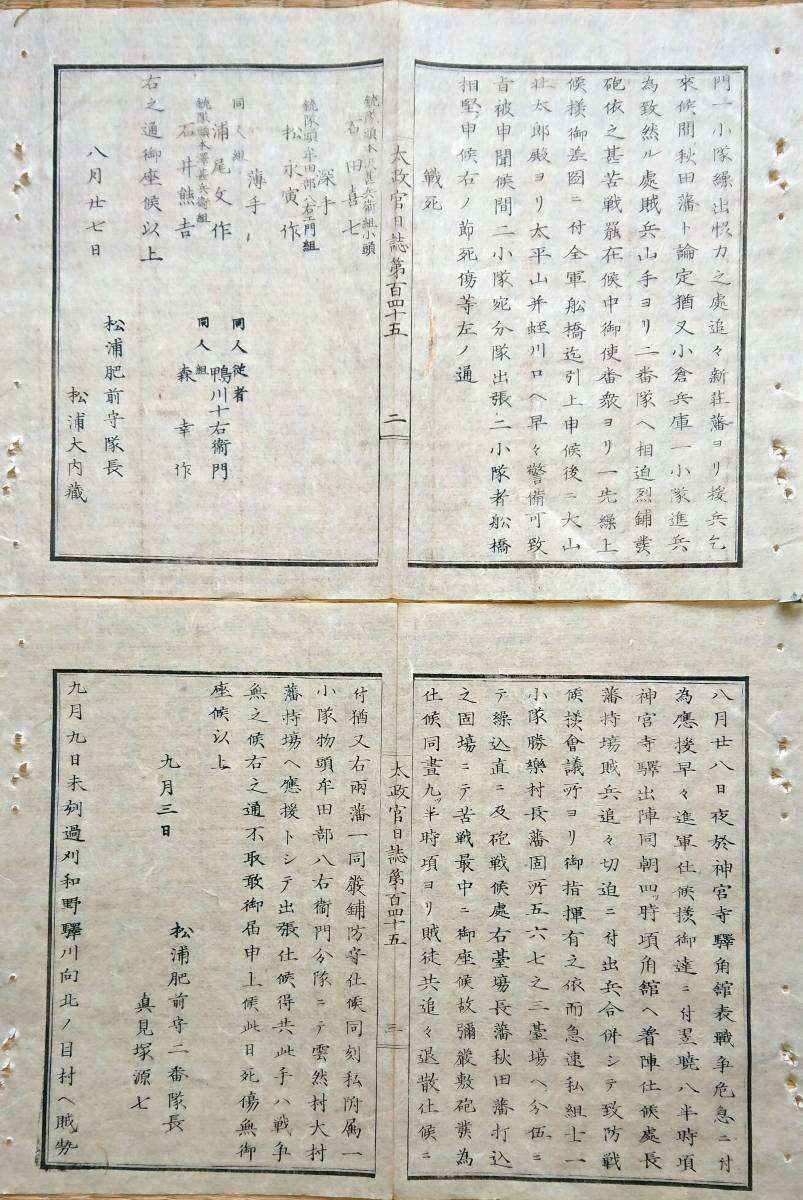 門一小隊繰出惧力之處追々新莊藩ヨリ援兵乞
來候間秋田藩ト論定猶又小倉兵庫一小隊進兵
為致然ル處賊兵山手ヨリ二番隊ヘ相迫烈鋪發
砲依之甚苦戰罷在候中御使番衆ヨリ一先繰上
候様御差圖ニ付全軍舩橋迄引上申候後ニ大山
壯太郎殿ヨリ太平山并蛭川口ヘ早々警備可致
旨被申聞候間二小隊宛分隊出張二小隊者舩橋
相堅申候右ノ節死傷等左ノ通
戦死
太政官日誌第百四十五
二
銃隊頭本沢甚兵衞組小頭
石田喜七
深手
銃隊頭牟田部八右エ門組
松永寅作
薄手
同人組
浦尾文作
同人従者
鴨川十右衞門
銃隊頭本澤甚兵衞組
石井熊吉
同人組
森幸作
右之通御座候以上
八月廿七日
松浦肥前守隊長
松浦大内藏
八月廿八日夜於神宮寺驛角舘表戰争危急ニ付
為應援早々進軍仕候様御達ニ付翌曉八半時頃
神宮寺驛出陣同朝四ッ時頃角舘ヘ着陣仕候處長
藩持場賊兵追々切迫ニ付出兵合併シテ致防戦
候様會議所ヨリ御指揮有之依而急速私組士一
小隊勝樂村長藩固所五六七之三臺場ヘ分伍ニ
テ繰込直ニ及砲戦候處右臺場長藩秋田藩打込
之固場ニテ苦戦最中ニ御座候故彌嚴敷砲發為
仕候同晝九ッ半時頃ヨリ賊徒共追々退散仕候ニ
太政官日誌第百四十五
三
付猶又右兩藩一同嚴鋪防守仕候同刻私附属一
小隊物頭牟田部八右衞門分隊ニテ雲然村大村
藩持場ヘ應援トシテ出張仕候得共此手ハ戦争
無之候右之通不取敢御届申上候此日死傷無御
座候以上
九月三日
松浦肥前守二番隊長
真見塚源七
九月九日未刻過刈和野驛川向北ノ目村ヘ賊勢